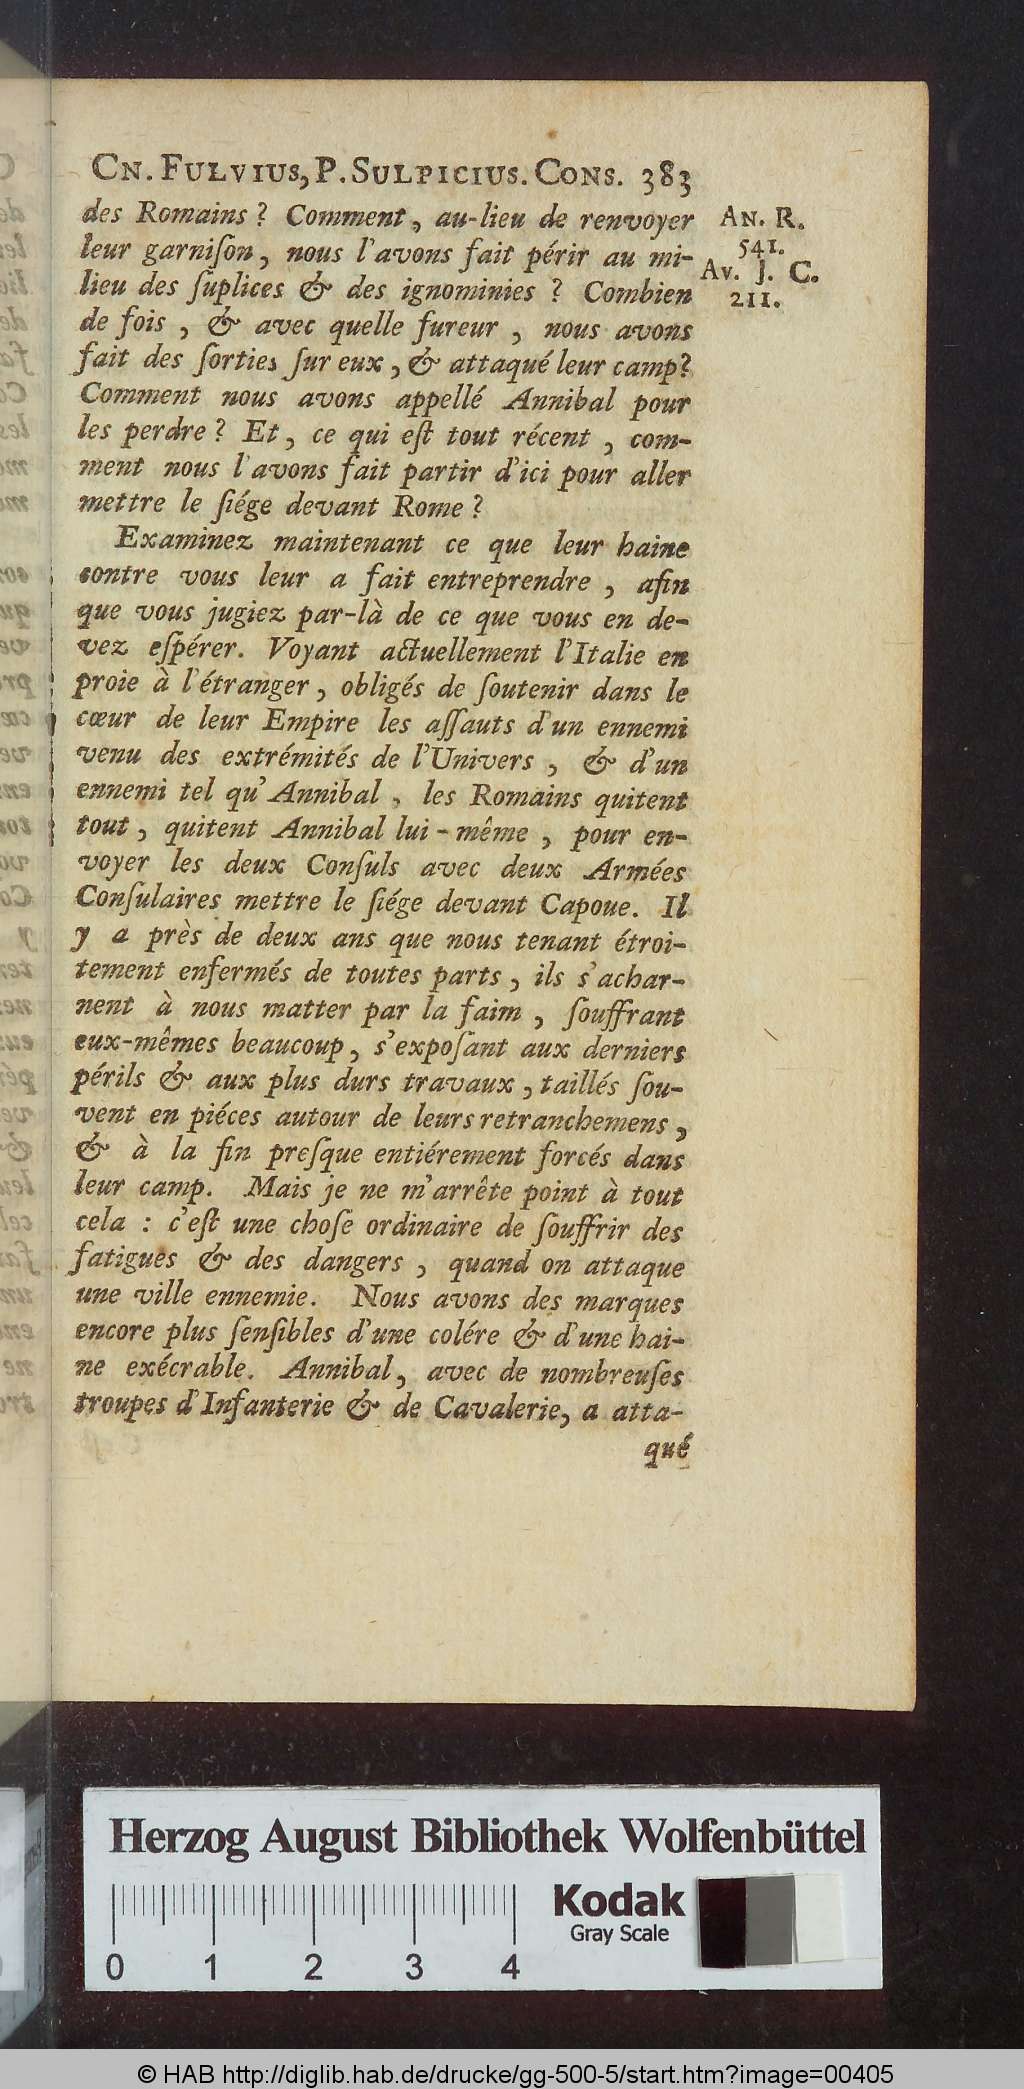 CN. FULVIUS, P. SULPICIUS. CONS. 383
des Romains ? Comment, au-lieu de renvoyer
leur garniſon, nous l'avons fait périr au mi-
lieu des ſuplices & des ignominies ? Combien
de fois, & avec quelle fureur, nous avons
fait des ſorties ſur eux, & attaqué leur camp?
Comment nous avons appellé Annibal pour
les perdre ? Et, ce qui eſt tout récent, com-
ment nous l'avons fait partir d'ici pour aller
mettre le ſiége devant Rome ?
Examinez maintenant ce que leur haine
contre vous leur a fait entreprendre, afin
que vous jugiez par-là de ce que vous en de-
vez eſpérer. Voyant actuellement l'Italie en
proie à l'étranger, obligés de ſoutenir dans le
cœur de leur Empire les aſſauts d'un ennemi
venu des extrémités de l'Univers, & d'un
ennemi tel qu'Annibal, les Romains quitent
tout, quitent Annibal lui-même, pour en-
voyer les deux Conſuls avec deux Armées
Conſulaires mettre le ſiége devant Capoue. Il
y a près de deux ans que nous tenant étroi-
tement enfermés de toutes parts, ils s'achar-
nent à nous matter par la faim, ſouffrant
eux-mêmes beaucoup, s'expoſant aux derniers
périls & aux plus durs travaux, taillés ſou-
vent en piéces autour de leurs retranchemens,
& à la fin preſque entiérement forcés dans
leur camp. Mais je ne m'arrête point à tout
cela : c'eſt une choſe ordinaire de ſouffrir des
fatigues & des dangers, quand on attaque
une ville ennemie. Nous avons des marques
encore plus ſenſibles d'une colére & d'une hai-
ne exécrable. Annibal, avec de nombreuſes
troupes d'Infanterie & de Cavalerie, a atta-
qué
AN. R.
541.
Av. J. C.
211.
Herzog August Bibliothek Wolfenbüttel
Kodak
Gray Scale
0 1 2 3 4
© HAB http://diglib.hab.de/drucke/gg-500-5/start.htm?image=00405